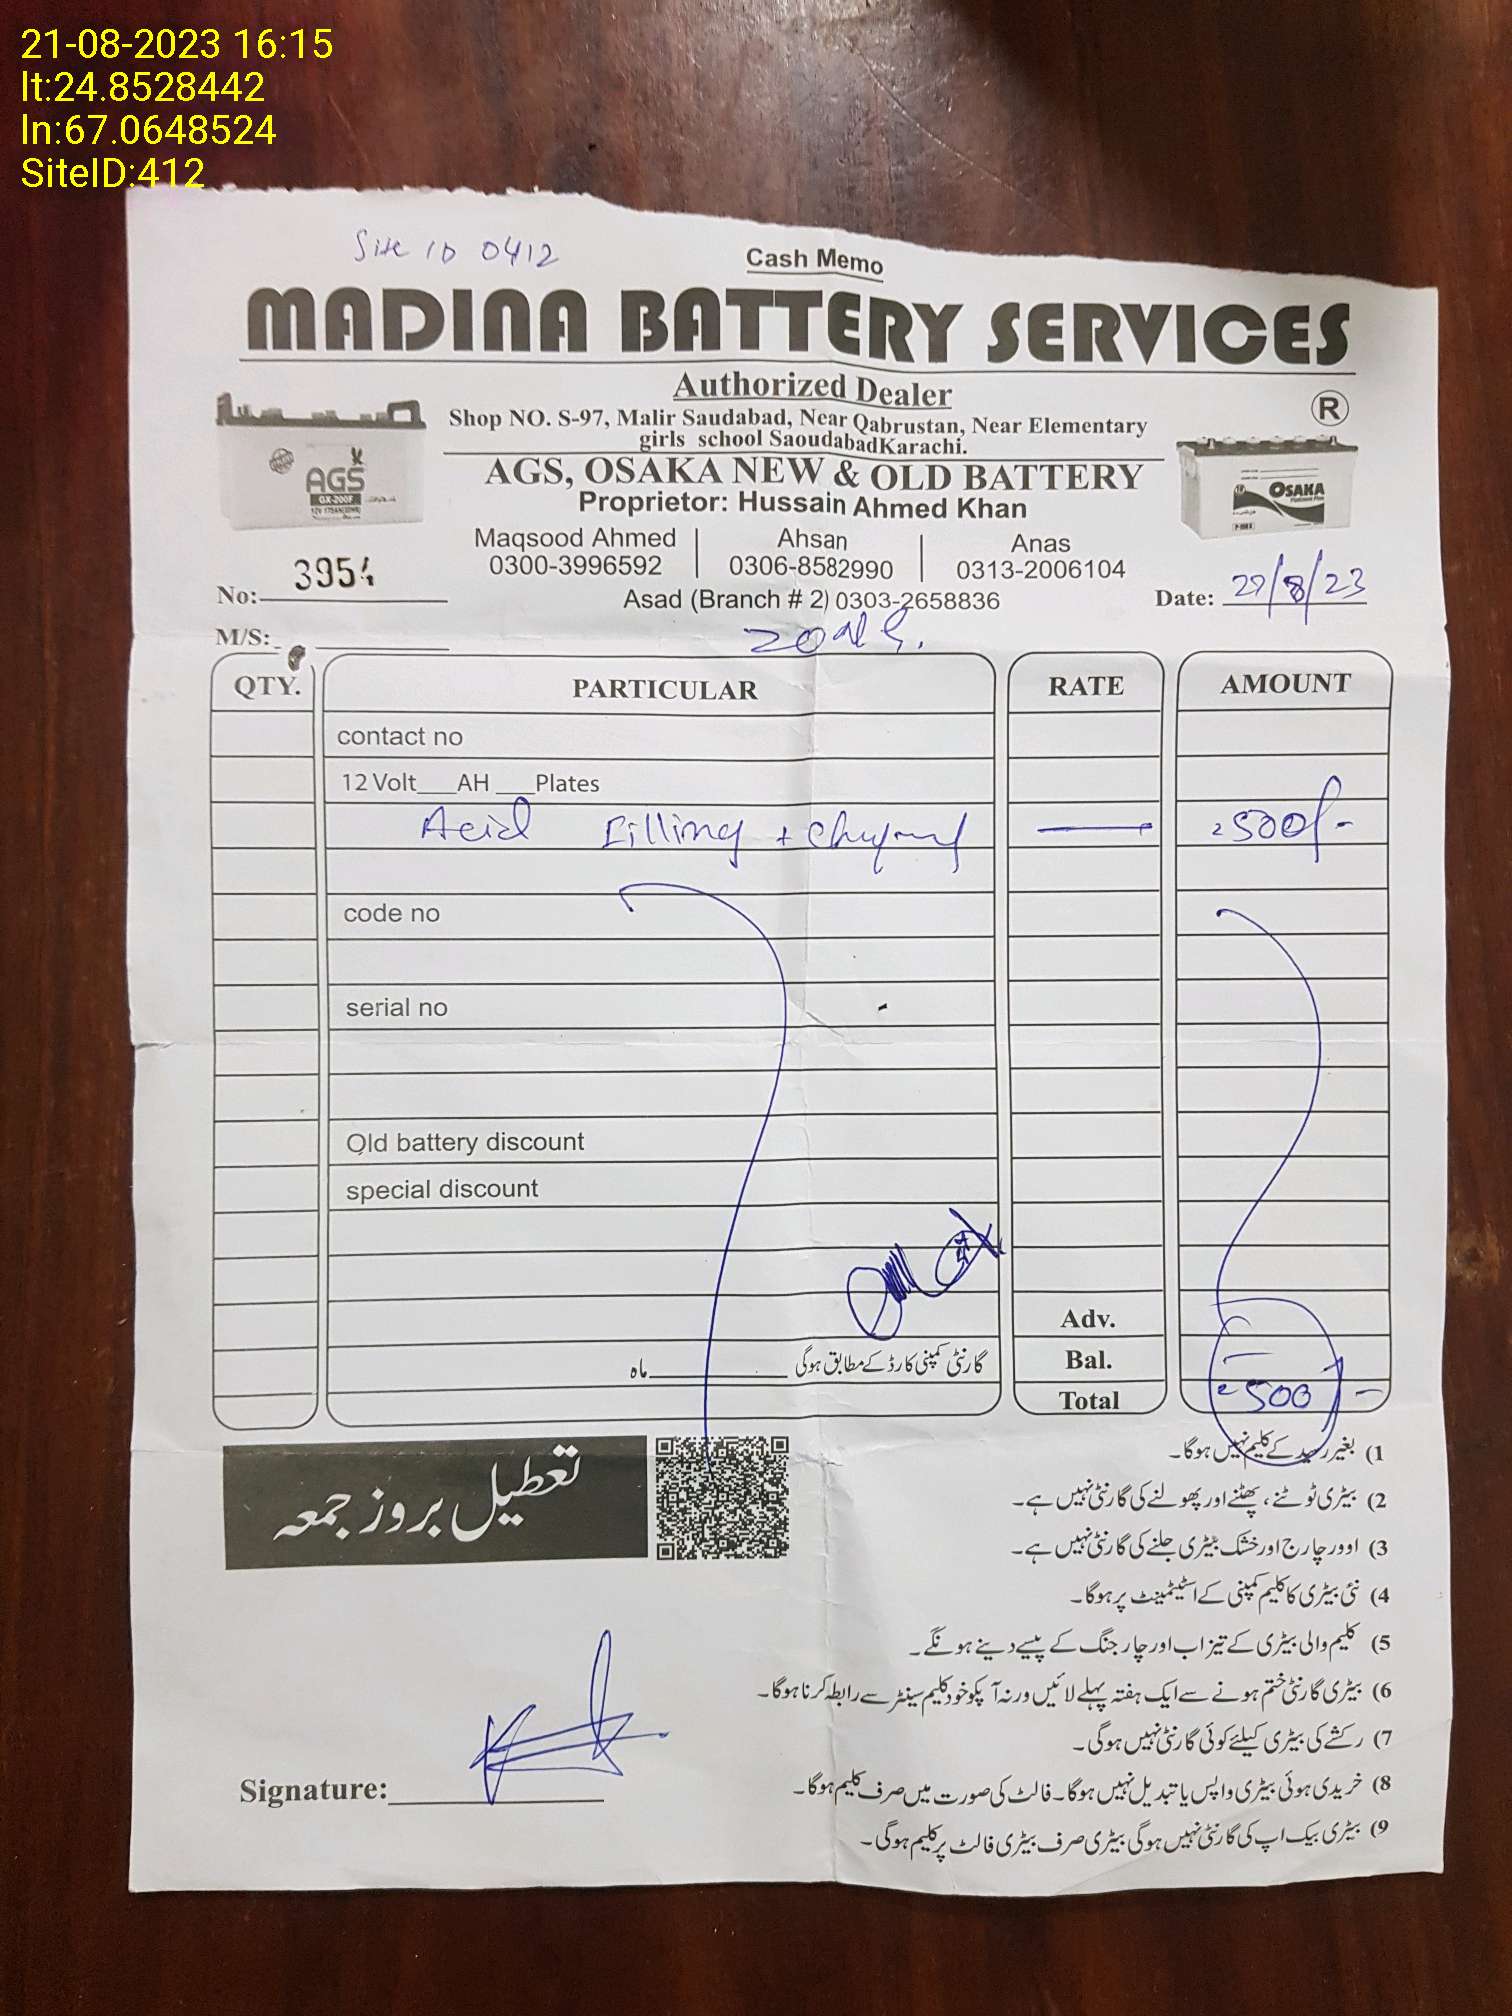 21-08-2023 16:15
lt:24.8528442
ln:67.0648524
SiteID:412
Site ID 0412
Cash Memo
MADINA BATTERY SERVICES
Authorized Dealer
®
Shop NO. S-97, Malir Saudabad, Near Qabrustan, Near Elementary
girls school Saoudabad Karachi.
AGS, OSAKA NEW & OLD BATTERY
Proprietor: Hussain Ahmed Khan
AGS
GX-200F
OSAKA
Maqsood Ahmed Ahsan Anas
0300-3996592 0306-8582990 0313-2006104
Asad (Branch # 2) 0303-2658836
No: 3954
Date: /8/23
M/S:
QTY. PARTICULAR RATE AMOUNT
contact no
12 Volt___AH ___Plates
Acid Filling + 2500/-
code no
serial no
Old battery discount
special discount
Adv.
گارنٹی کمپنی کارڈ کے مطابق ہوگی ________ ماہ Bal. —
Total 2500/-
تعطیل بروز جمعہ
1) بغیر رسید کے کلیم نہیں ہوگا۔
2) بیٹری ٹوٹنے، پھٹنے اور پھولنے کی گارنٹی نہیں ہے۔
3) اوور چارج اور خشک بیٹری جلنے کی گارنٹی نہیں ہے۔
4) نئی بیٹری کا کلیم کمپنی کے اسٹیٹمینٹ پر ہوگا۔
5) کلیم والی بیٹری کے تیزاب اور چارجنگ کے پیسے دینے ہونگے۔
6) بیٹری گارنٹی ختم ہونے سے ایک ہفتہ پہلے لائیں ورنہ آپکو خود کلیم سینٹر سے رابطہ کرنا ہوگا۔
7) رکشے کی بیٹری کیلئے کوئی گارنٹی نہیں ہوگی۔
8) خریدی ہوئی بیٹری واپس یا تبدیل نہیں ہوگا۔ فالٹ کی صورت میں صرف کلیم ہوگا۔
9) بیٹری بیک اپ کی گارنٹی نہیں ہوگی بیٹری صرف بیٹری فالٹ پر کلیم ہوگی۔
Signature: